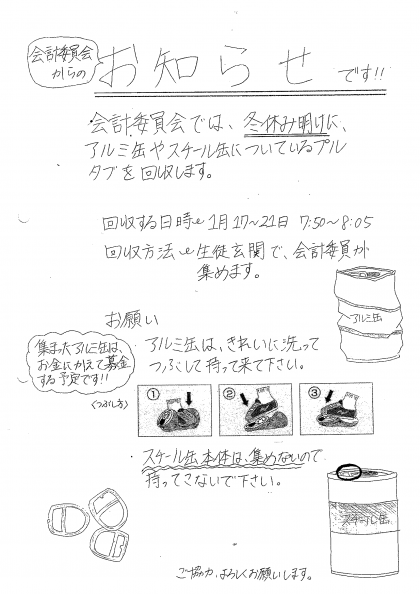 会計委員会
からの
お知らせ
です!!
会計委員会では、冬休み明けに、
アルミ缶やスチール缶についているプル
タブを回収します。
回収する日時 1月17～21日 7:50～8:05
回収方法 生徒玄関で、会計委員が
集めます。
アルミ缶
お願い
集まったアルミ缶は、
お金にかえて募金
する予定です!!
アルミ缶は、きれいに洗って
つぶして持って来て下さい。
〈つぶし方〉
① ② ③
スチール缶本体は、集めないので
持ってこないで下さい。
スチール缶
ご協力、よろしくお願いします。